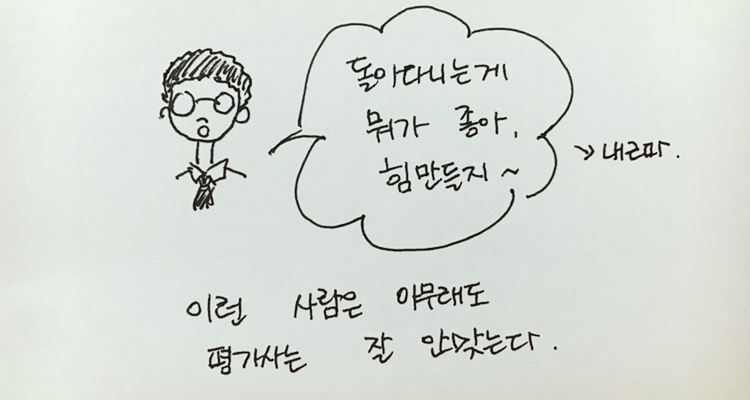 돌아다니는게
뭐가 좋아,
힘만들지~
→ 내근파.
이런 사람은 아무래도
평가사는 잘 안맞는다.